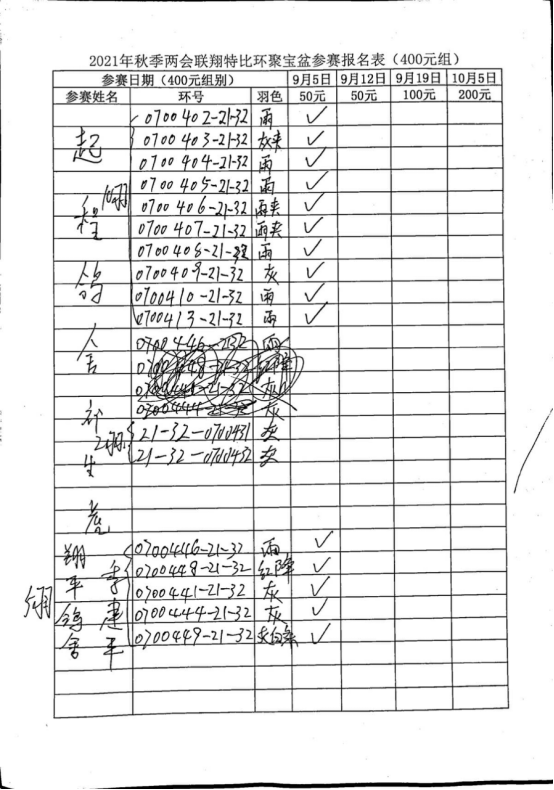 2021年秋季两会联翔特比环聚宝盆参赛报名表（400元组）
参赛日期（400元组别） 9月5日 9月12日 9月19日 10月5日
参赛姓名 环号 羽色 50元 50元 100元 200元
0700402-21-32 雨 ✓
起 0700403-21-32 灰夹 ✓
0700404-21-32 雨 ✓
0700405-21-32 雨 ✓
10羽 0700406-21-32 雨夹 ✓
程 0700407-21-32 雨夹 ✓
0700408-21-32 雨 ✓
鸽 0700409-21-32 灰 ✓
0700410-21-32 雨 ✓
0700413-21-32 雨 ✓
舍 0700446-2132 雨
0700448-21-32 红降
灰
0700444-21-32 灰
2羽 21-32-0700431 灰
生 21-32-0700432 灰
翔 0700446-21-32 雨 ✓
平 李 0700448-21-32 红降 ✓
0700441-21-32 灰 ✓
鸽 建 0700444-21-32 灰 ✓
舍 平 0700449-21-32 ✓